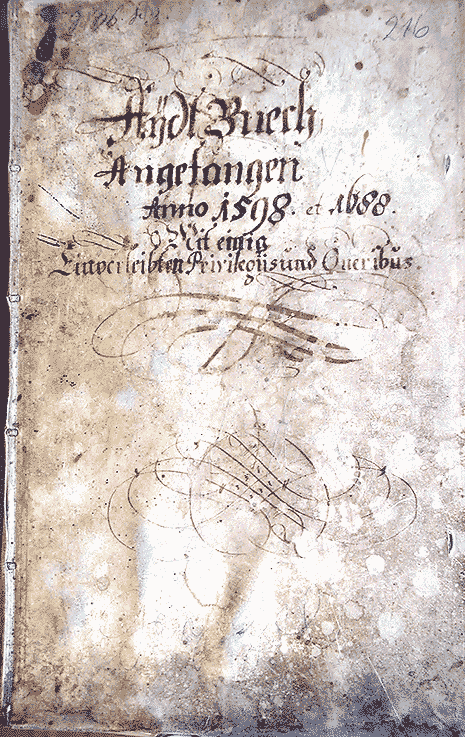 216
Aÿdt Buech
Angefangen
Anno 1598. et 1688.
Mit einig
Einverleibten Privilegiis und Oneribus.